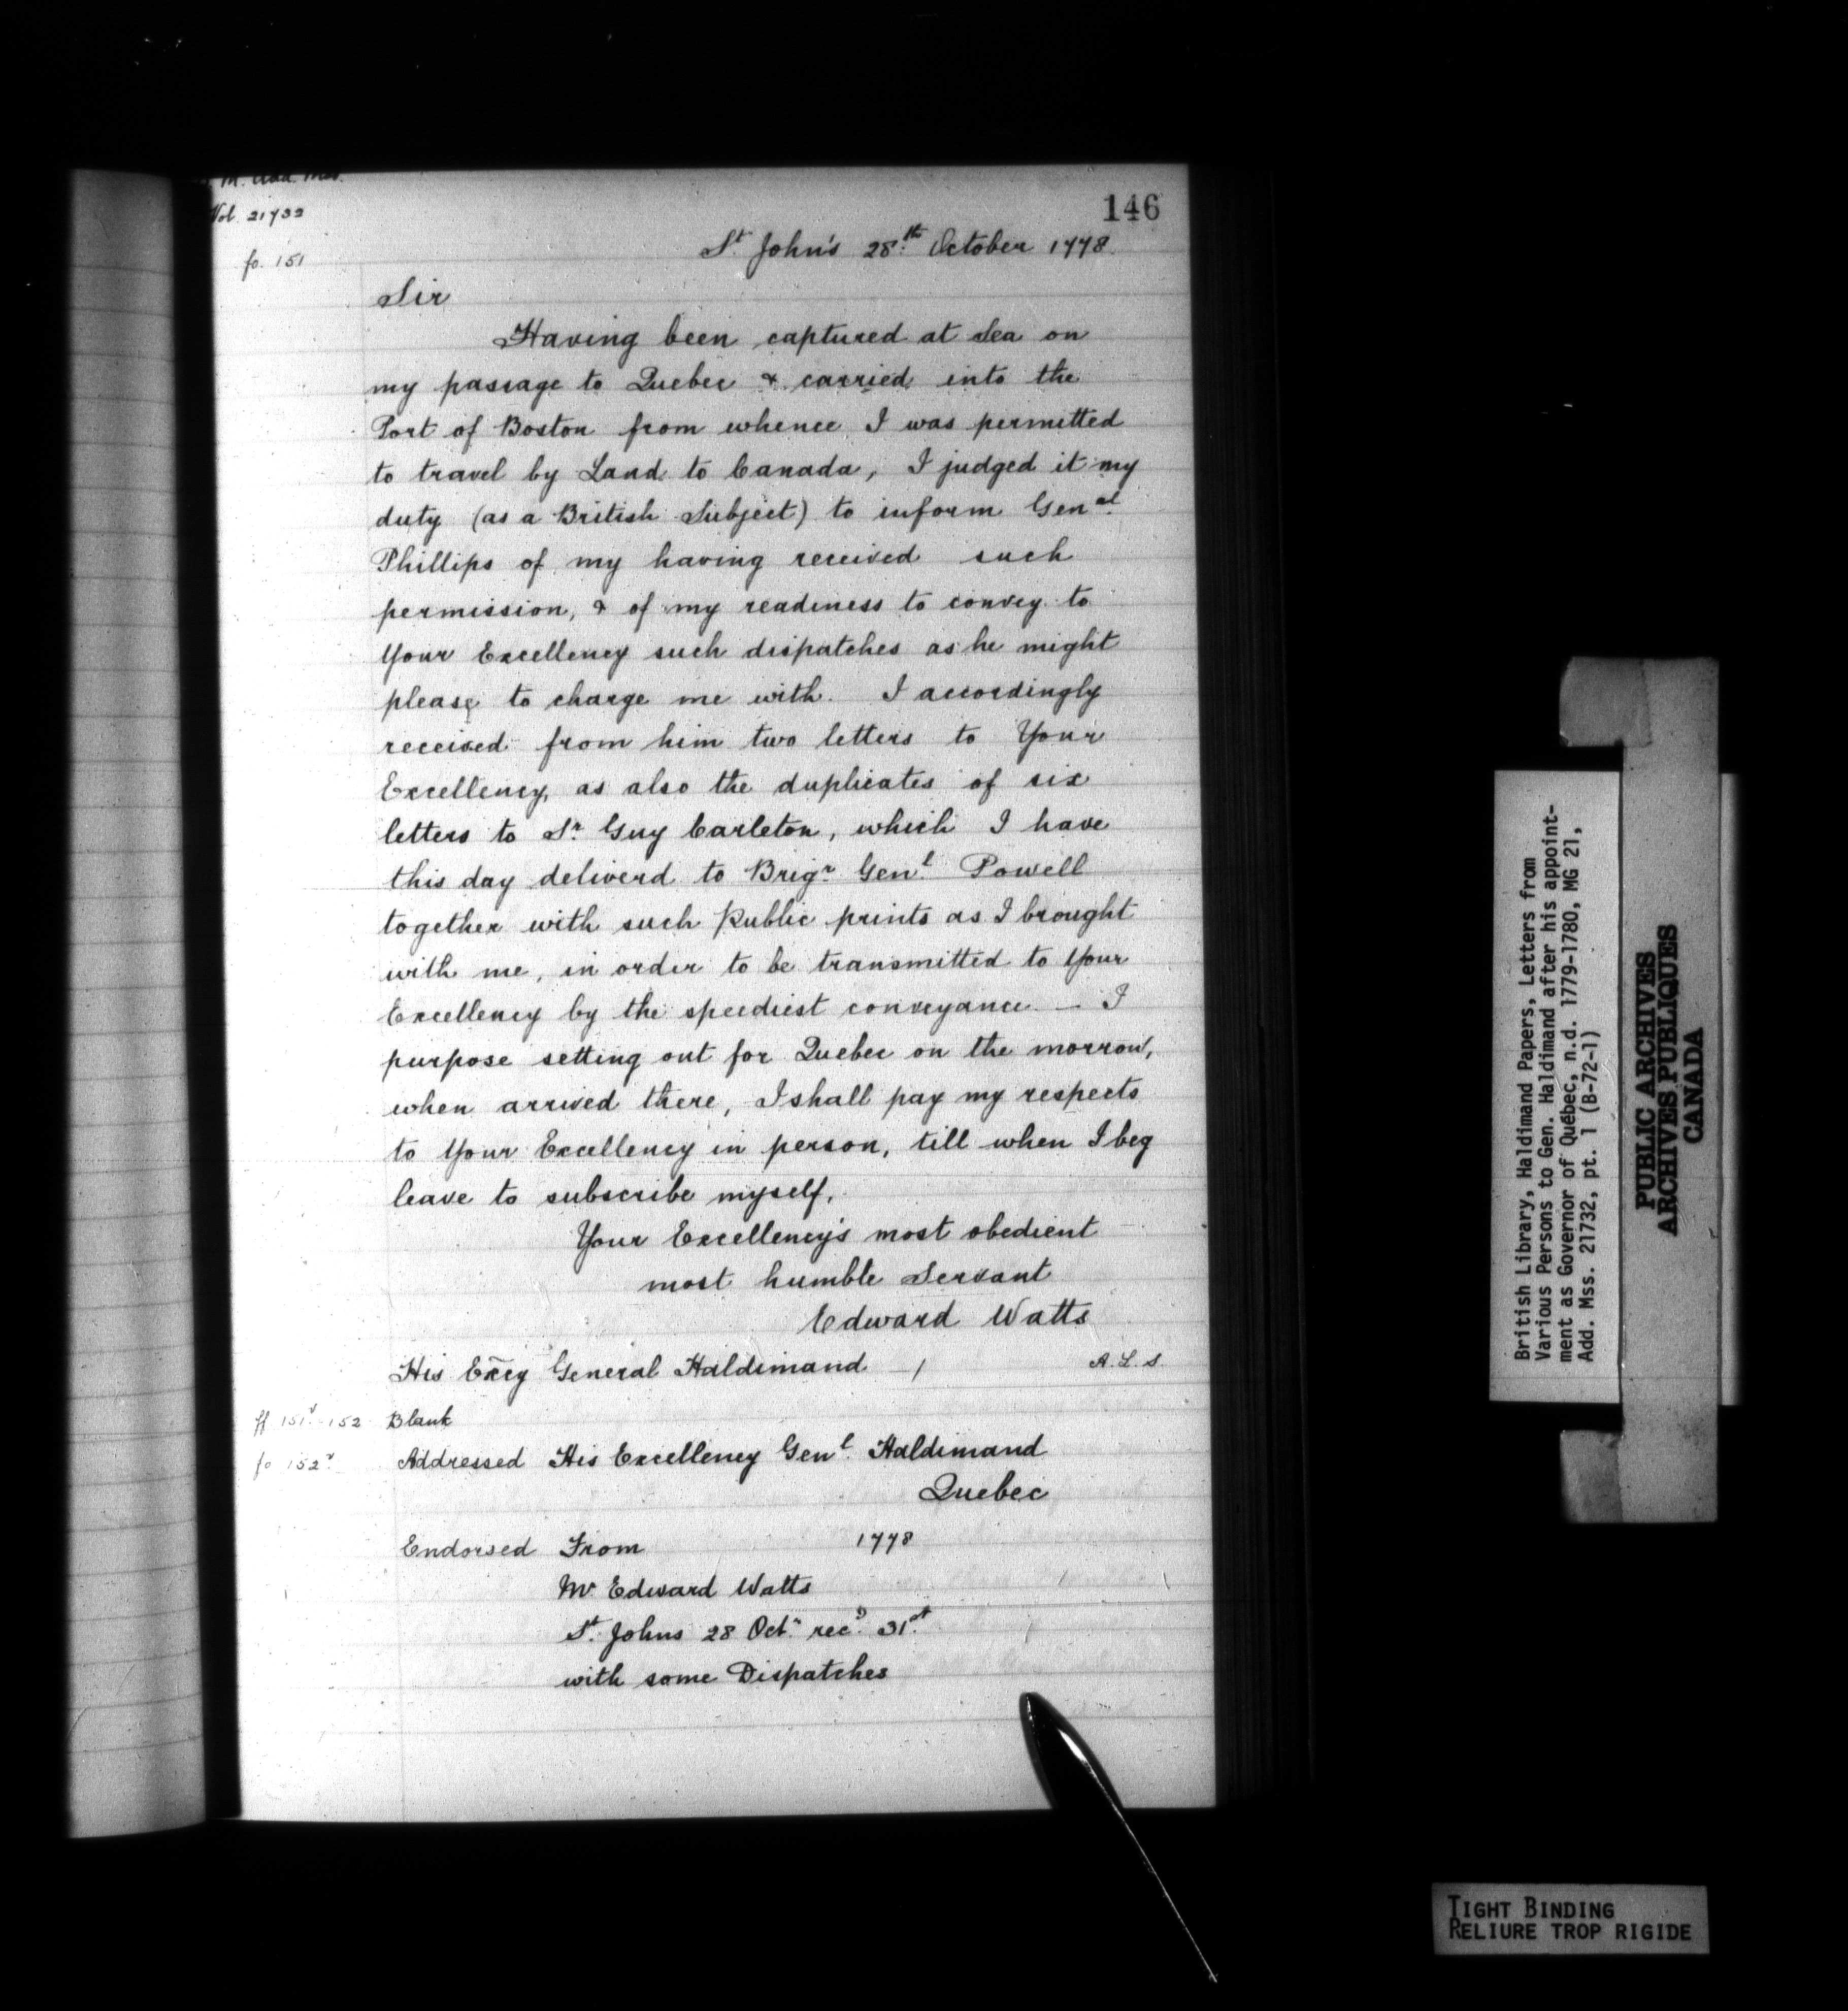 M. Add. Mss.
Vol. 21732
146
fo. 151
St. John's 28th October 1778.
Sir
Having been captured at Sea on
my passage to Quebec & carried into the
Port of Boston from whence I was permitted
to travel by Land to Canada, I judged it my
duty (as a British Subject) to inform Genal
Phillips of my having received such
permission, & of my readiness to convey to
Your Excellency such dispatches as he might
please to charge me with. I accordingly
received from him two letters to Your
Excellency, as also the duplicates of six
letters to Sr Guy Carleton, which I have
this day deliverd to Brigr Genl Powell
together with such Public prints as I brought
with me, in order to be transmitted to Your
Excellency by the speediest conveyance — I
purpose setting out for Quebec on the morrow,
when arrived there, I shall pay my respects
to Your Excellency in person, till when I beg
leave to subscribe myself,
Your Excellency's most obedient
most humble Servant
Edward Watts
His Excy General Haldimand — /
A. L. S.
ff 151v-152 Blank
fo 152v Addressed His Excellency Genl Haldimand
Quebec
Endorsed From 1778
Mr Edward Watts
St. Johns 28 Octr recd 31st
with some Dispatches
British Library, Haldimand Papers, Letters from
Various Persons to Gen. Haldimand after his appoint-
ment as Governor of Québec, n.d. 1779-1780, MG 21,
Add. Mss. 21732, pt. 1 (B-72-1)
PUBLIC ARCHIVES
ARCHIVES PUBLIQUES
CANADA
TIGHT BINDING
RELIURE TROP RIGIDE